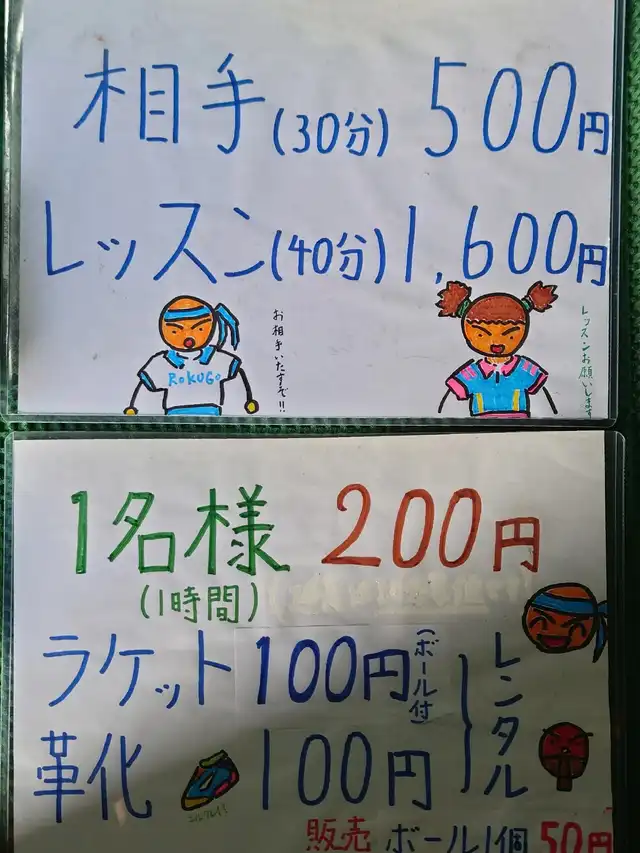 相手(30分) 500円
レッスン(40分) 1,600円
ROKUGO
お相手いたすぞ!!
レッスンお願いします
1名様 200円
(1時間)
ラケット 100円(ボール付)
革化 100円
レンタル
販売 ボール1個 50円